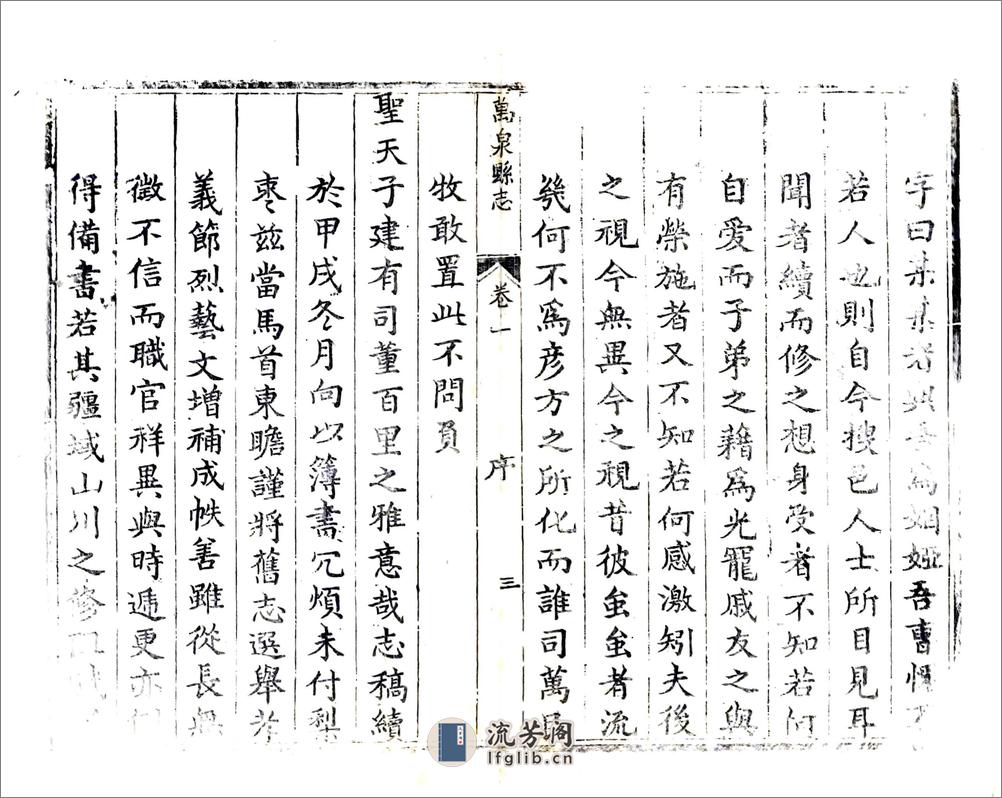 字曰某某者與吾為姻婭吾曹
若人也則自今搜邑人士所目見耳
聞者續而修之想身受者不知若何
自愛而子弟之藉為光寵戚友之與
有榮施者又不知若何感激矧夫後
之視今無異今之視昔彼蚩蚩者流
幾何不為彥方之所化而誰司萬民
萬泉縣志 卷一 序 三
牧敢置此不問負
聖天子建有司董百里之雅意哉志稿續
於甲戌冬月向以簿書冗煩未付梨
棗茲當馬首東瞻謹將舊志選舉孝
義節烈藝文增補成帙善雖從長無
徵不信而職官祥異與時遞更亦
得備書若其疆域山川之
流芳閣
lfglib.cn